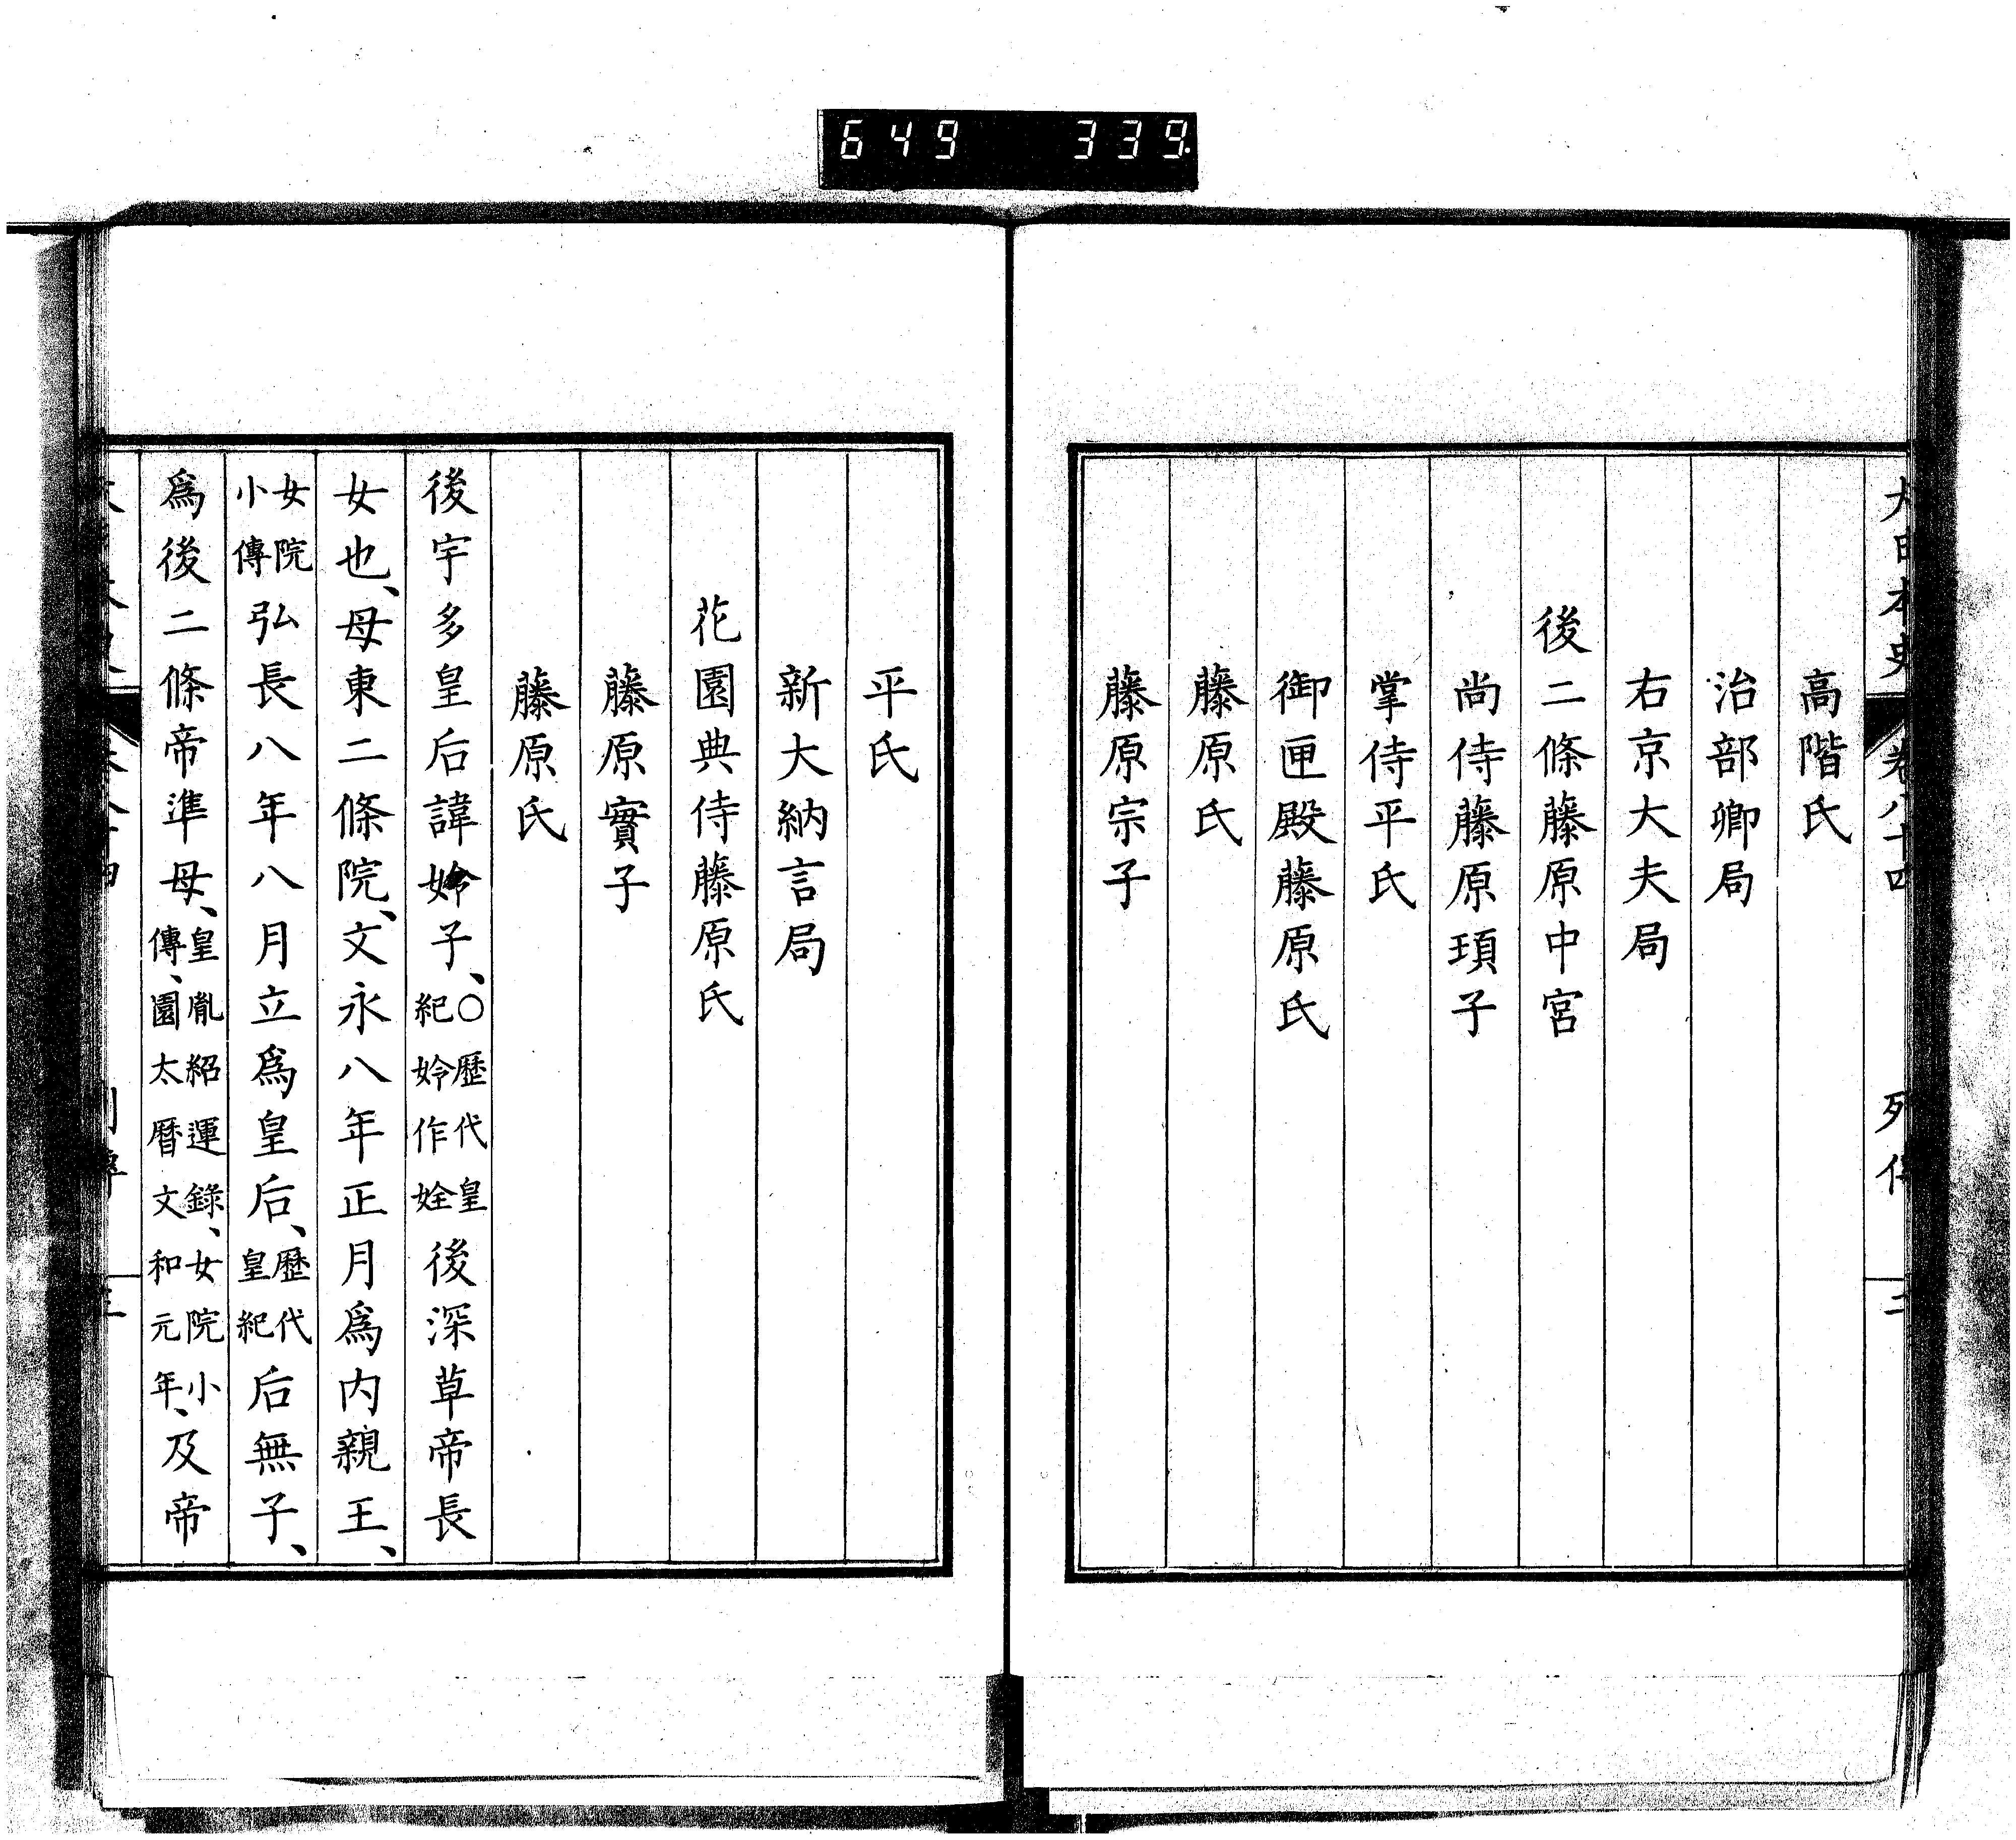 649 339
大日本史 卷八十四 列傳 二
高階氏
治部卿局
右京大夫局
後二條藤原中宮
尚侍藤原頊子
掌侍平氏
御匣殿藤原氏
藤原氏
藤原宗子
平氏
新大納言局
花園典侍藤原氏
藤原實子
藤原氏
後宇多皇后諱姈子、○歷代皇紀姈作姾後深草帝長
女也、母東二條院、文永八年正月爲内親王、
女院小傳弘長八年八月立爲皇后、歷代皇紀后無子、
爲後二條帝準母、皇胤紹運錄、女院小傳、園太曆文和元年、及帝